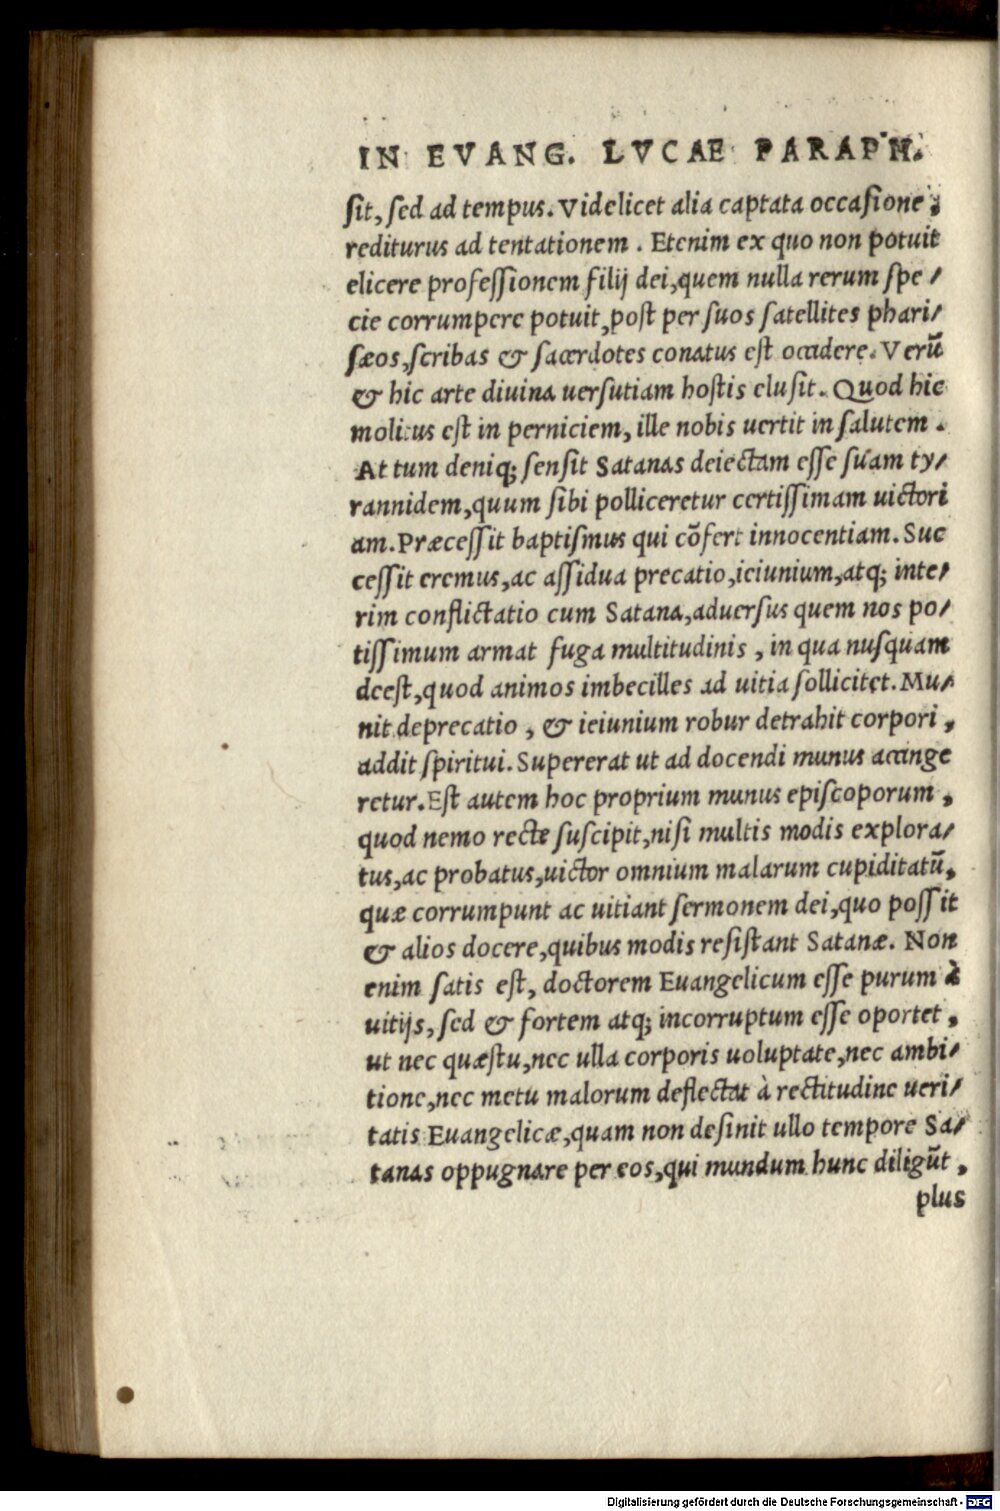 IN EVANG. LVCAE PARAPH.
sit, sed ad tempus. Videlicet alia captata occasione,
rediturus ad tentationem. Etenim ex quo non potuit
elicere professionem filij dei, quem nulla rerum spe/
cie corrumpere potuit, post per suos satellites phari/
sæos, scribas & sacerdotes conatus est occidere. Verũ
& hic arte diuina uersutiam hostis elusit. Quod hic
molitus est in perniciem, ille nobis uertit in salutem.
At tum deniq; sensit Satanas deiectam esse suam ty/
rannidem, quum sibi polliceretur certissimam uictori
am. Præcessit baptismus qui cõfert innocentiam. Suc
cessit eremus, ac assidua precatio, ieiunium, atq; inte/
rim conflictatio cum Satana, aduersus quem nos po/
tissimum armat fuga multitudinis, in qua nusquam
deest, quod animos imbecilles ad uitia sollicitet. Mu/
nit deprecatio, & ieiunium robur detrahit corpori,
addit spiritui. Supererat ut ad docendi munus accinge
retur. Est autem hoc proprium munus episcoporum,
quod nemo recte suscipit, nisi multis modis explora/
tus, ac probatus, uictor omnium malarum cupiditatũ,
quæ corrumpunt ac uitiant sermonem dei, quo possit
& alios docere, quibus modis resistant Satanæ. Non
enim satis est, doctorem Euangelicum esse purum à
uitijs, sed & fortem atq; incorruptum esse oportet,
ut nec quæstu, nec ulla corporis uoluptate, nec ambi/
tione, nec metu malorum deflectat à rectitudine ueri/
tatis Euangelicæ, quam non desinit ullo tempore Sa/
tanas oppugnare per eos, qui mundum hunc diligũt,
plus
Digitalisierung gefördert durch die Deutsche Forschungsgemeinschaft - DFG